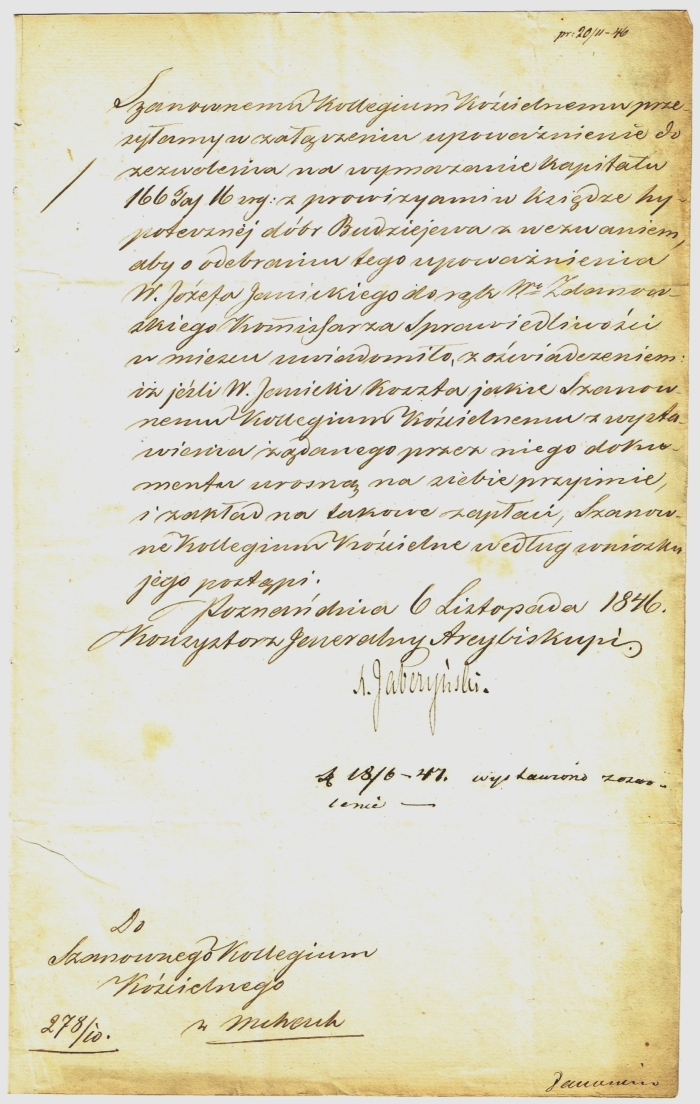 pr: 20/11 - 46
Szanownemu Kollegium Kościelnemu prze-
syłamy w załączeniu upoważnienie do
zezwolenia na wymazanie kapitału
166 Taj 16 srg: z prowizyami w księdze hy-
potecznéj dóbr Budziejewa z wezwaniem,
aby o odebraniu tego upoważnienia
W. Józefa Janickiego do rąk Wo Zdanow-
skiego Kommissarza Sprawiedliwości
w miescu uwiadomiło, z oświadczeniem:
iż jeśli W. Janicki koszta jakie Szanow-
nemu Kollegium Kościelnemu z wysta-
wienia żądanego przez niego doku-
mentu urosną na siebie przyimie,
i zakład na takowe zapłaci, Szanow-
ne Kollegium Kościelne według wniosku
jego postąpi.
Poznań dnia 6 Listopada 1846.
Konsystorz Jeneralny Arcybiskupi.
A. Jabczyński.
18/6 - 47. wystawiono zezwo-
lenie —
Do
Szanownego Kollegium
Kościelnego
278/10. w